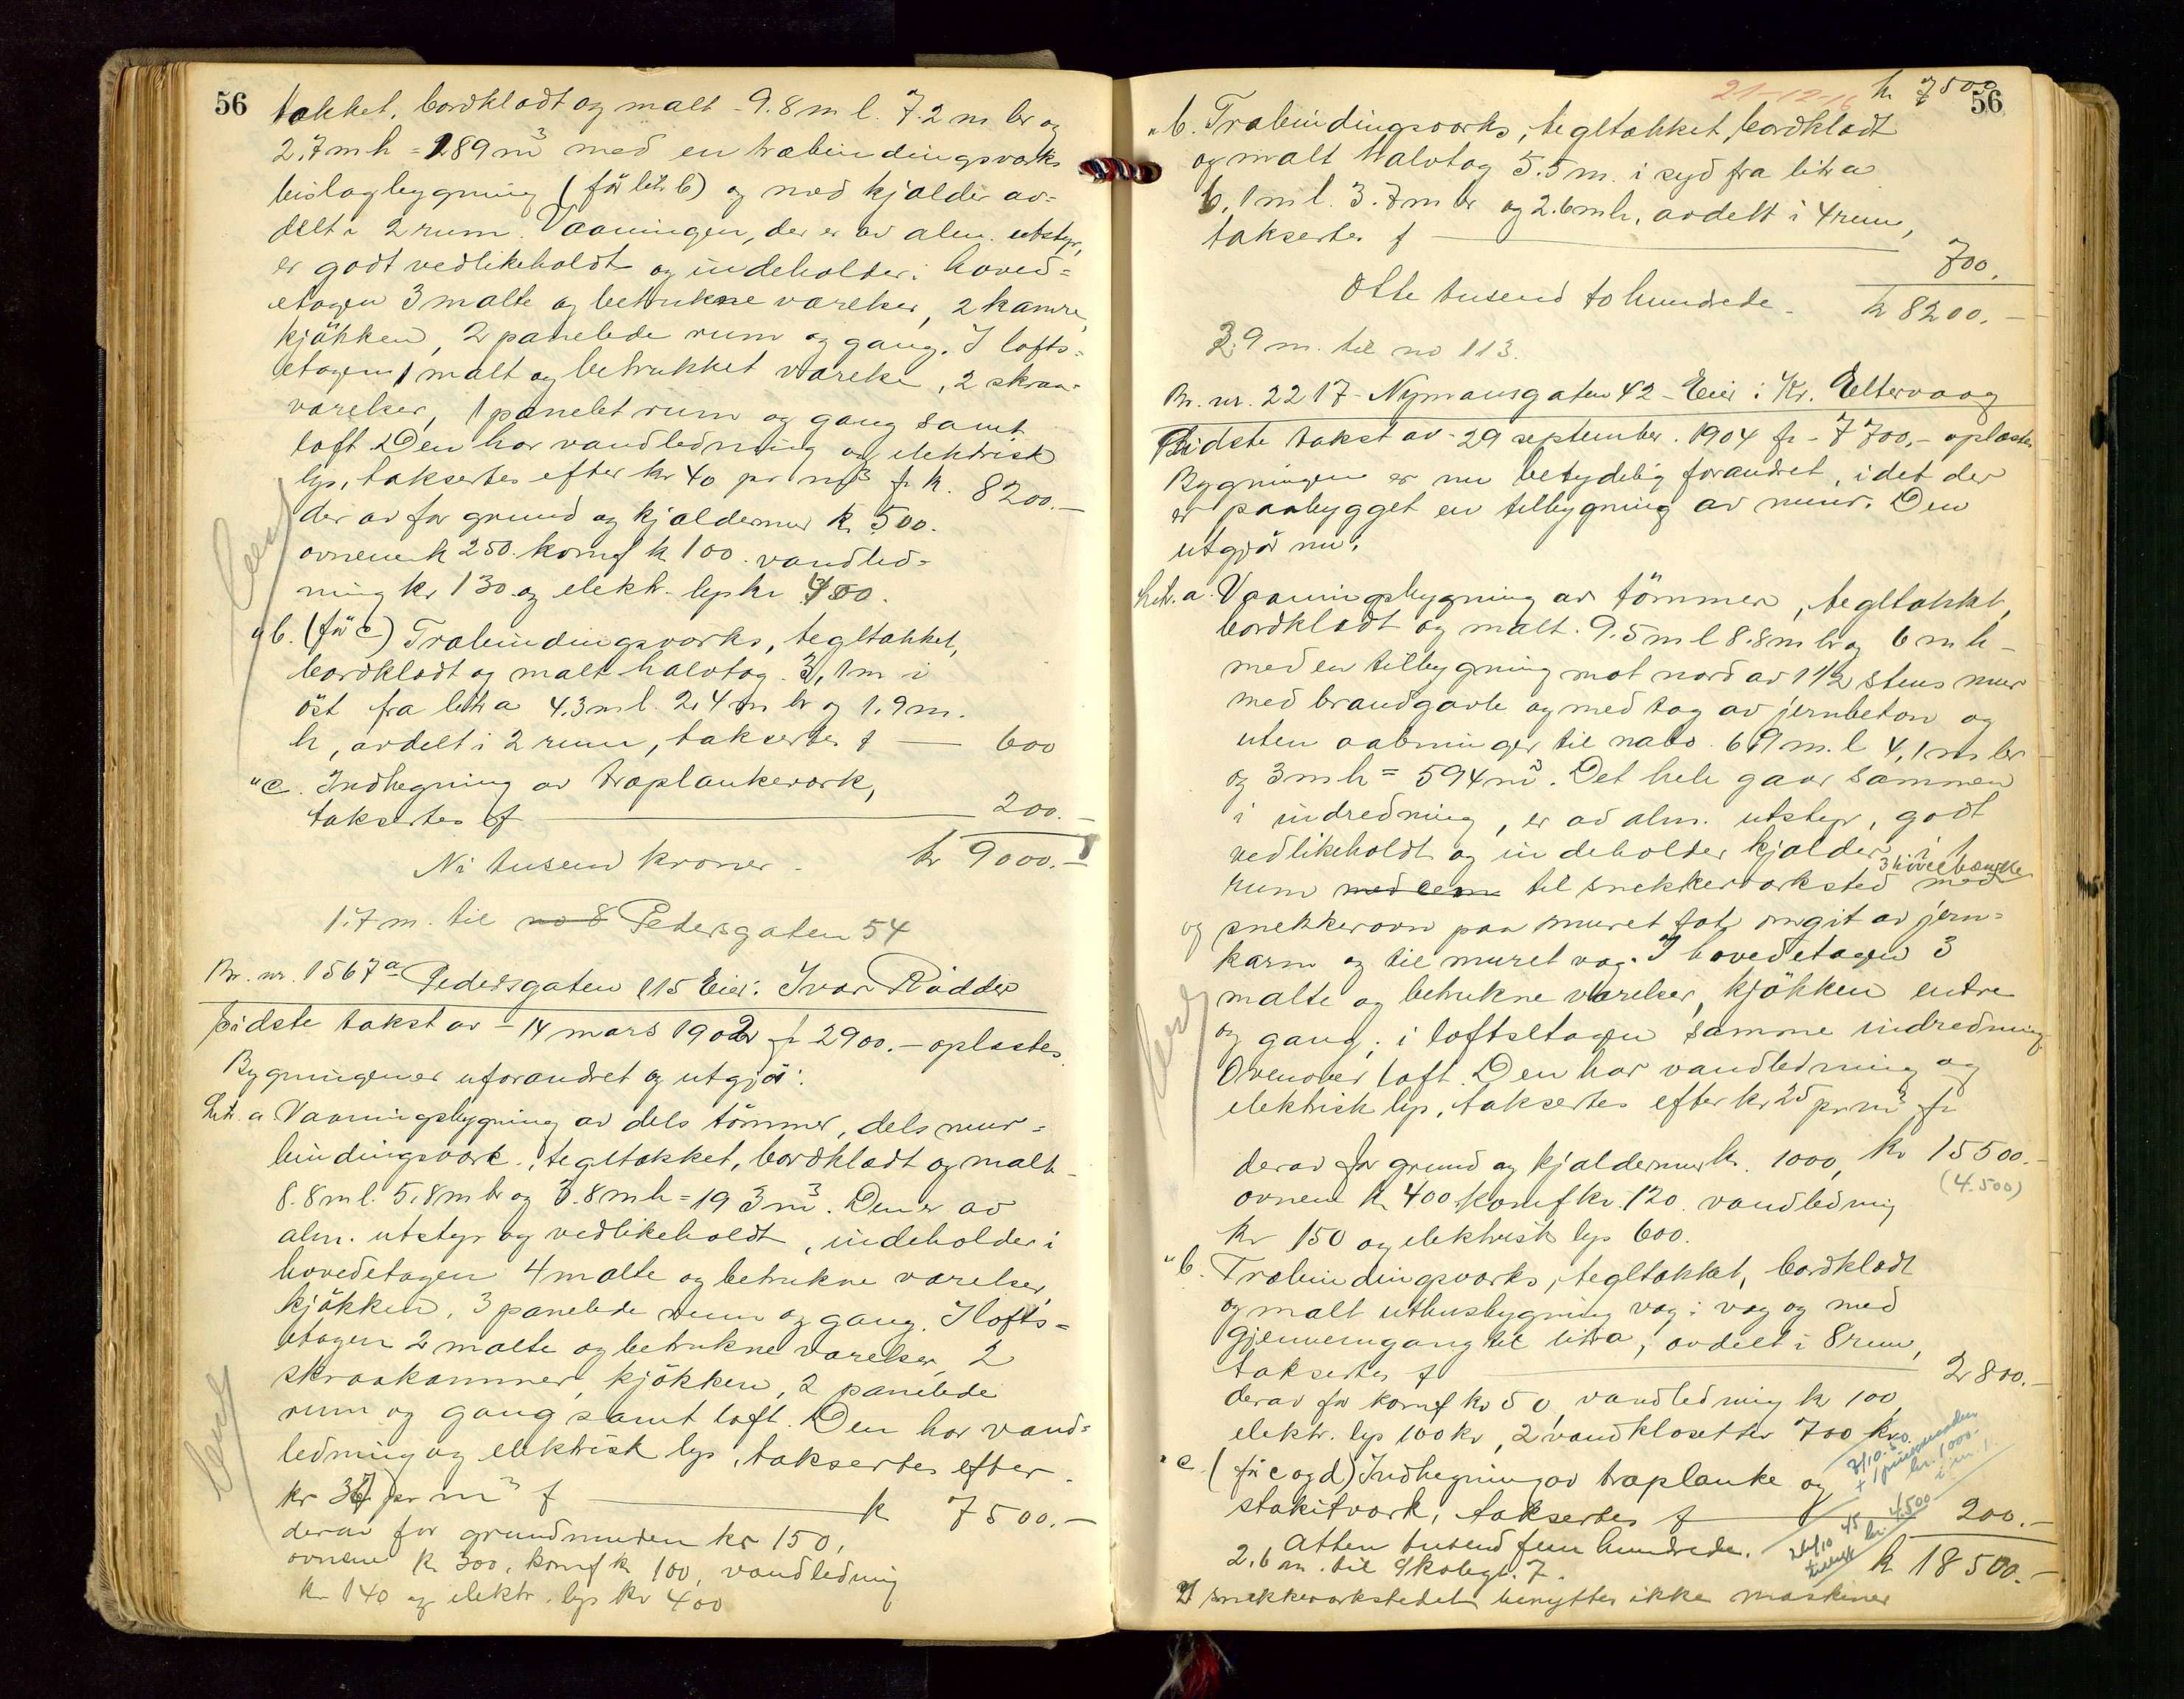 56
tækket, bordklædt og malt - 9.8 m l. 7.2 m br og
2.7 m h = 189 m3 med en træbindingsværks
bislagbygning (før litr b) og med kjælder av=
delt i 2 rum. Vaaningen, der er av alm. utstyr,
er godt vedlikeholdt og indeholder i hoved=
etagen 3 malte og betrukne værelser, 2 kamre,
kjøkken, 2 panelede rum og gang. I lofts=
etagen 1 malt og betrukket værelse, 2 skraa=
værelser, 1 panelet rum og gang samt
loft. Den har vandledning og elektrisk
lys, taksertes efter kr 40 pr m3 fr k. 8200.-
der av for grund og kjældermur k 500.
ovnene k 250. komf k 100. vandled=
ning kr 130 og elektr. lys kr 400.
" b. (før c) Træbindingsværks, tegltækket,
bordklædt og malt halvtag. 3,1 m i
øst fra litr a 4.3 m l. 2,4 m br og 1.9 m.
h, avdelt i 2 rum, taksertes f — 600
" c. Indhegning av træplankeværk,
taksertes f — 200.-
Ni tusend kroner. kr 9000.-
1.7 m. til no 8 Pedersgaten 54
Br. nr. 1567a Pedersgaten 115 Eier: Ivar Rødder
Sidste takst av - 14 mars 1902 fr 2900.- oplæstes.
Bygningen er uforandret og utgjør:
Litr. a Vaaningsbygning av dels tømmer, dels mur=
bindingsværk, tegltækket, bordklædt og malt -
8.8 m l. 5,8 m br og 3.8 m h = 193 m3. Den er av
alm. utstyr og vedlikeholdt, indeholder i
hovedetagen 4 malte og betrukne værelser,
kjøkken, 3 panelede rum og gang. I lofts=
etagen 2 malte og betrukne værelser, 2
skraakammer, kjøkken, 2 panelede
rum og gang samt loft. Den har vand=
ledning og elektrisk lys, taksertes efter
kr 37 pr m3 f — k 7500.-
derav for grundmuren kr 150,
ovnene k 300, komf k 100, vandledning
kr 140 og elektr. lys kr 400
21-12-16 kr 7500
56
" b. Træbindingsværks, tegltækket, bordklædt
og malt halvtag 5.5 m. i syd fra litr a
6,1 m l. 3.7 m br og 2.6 m h, avdelt i 4 rum,
taksertes f — 700.
Otte tusend to hundrede. k 8200.-
3.9 m. til no 113.
Br. nr. 2217 - Nymansgaten 42 - Eier: Kr. Eltervaag
Sidste takst av - 29 september. 1904 fr - 7700.- oplæstes
Bygningen er nu betydelig forandret, idet der
er paabygget en tilbygning av mur. Den
utgjør nu:
Litr. a. Vaaningsbygning av tømmer, tegltækket,
bordklædt og malt. 9.5 m l 8.8 m br og 6 m h -
med en tilbygning mot nord av 1 1/2 stens mur
med brandgavle og med tag av jernbeton og
uten aabninger til nabo. 6,9 m. l 4,1 m br
og 3 m h = 594 m3. Det hele gaar sammen
i indredning, er av alm. utstyr, godt
vedlikeholdt og indeholder kjælder i 1
rum til snekkerverksted med 3 høvelbænke
og snekkerovn paa muret fot omgit av jern=
karm og til muret væg. I hovedetagen 3
malte og betrukne værelser, kjøkken entre
og gang; i loftsetagen samme indredning.
Ovenover loft. Den har vandledning og
elektrisk lys, taksertes efter kr 25 pr m3 fr
kr 15500.-
(4.500)
derav for grund og kjældermur k. 1000,
ovnene k 400 komf kr. 120. vandledning
kr 150 og elektrisk lys 600.
" b. Træbindingsværks, tegltækket, bordklædt
og malt uthusbygning væg i væg og med
gjennemgang til litr a, avdelt i 8 rum,
taksertes f — 2800.-
derav for komf kr 50, vandledning k 100,
elektr. lys 100 kr, 2 vandklosetter 700 kr.
" c. (før c og d) Indhegning av træplanke og
stakitværk, taksertes f — 200.-
Atten tusend fem hundrede. k 18500.-
kr. 1000.-
kr. 4.500
2.6 m. til Skolegt. 7.
I snekkerverkstedet benyttes ikke maskiner